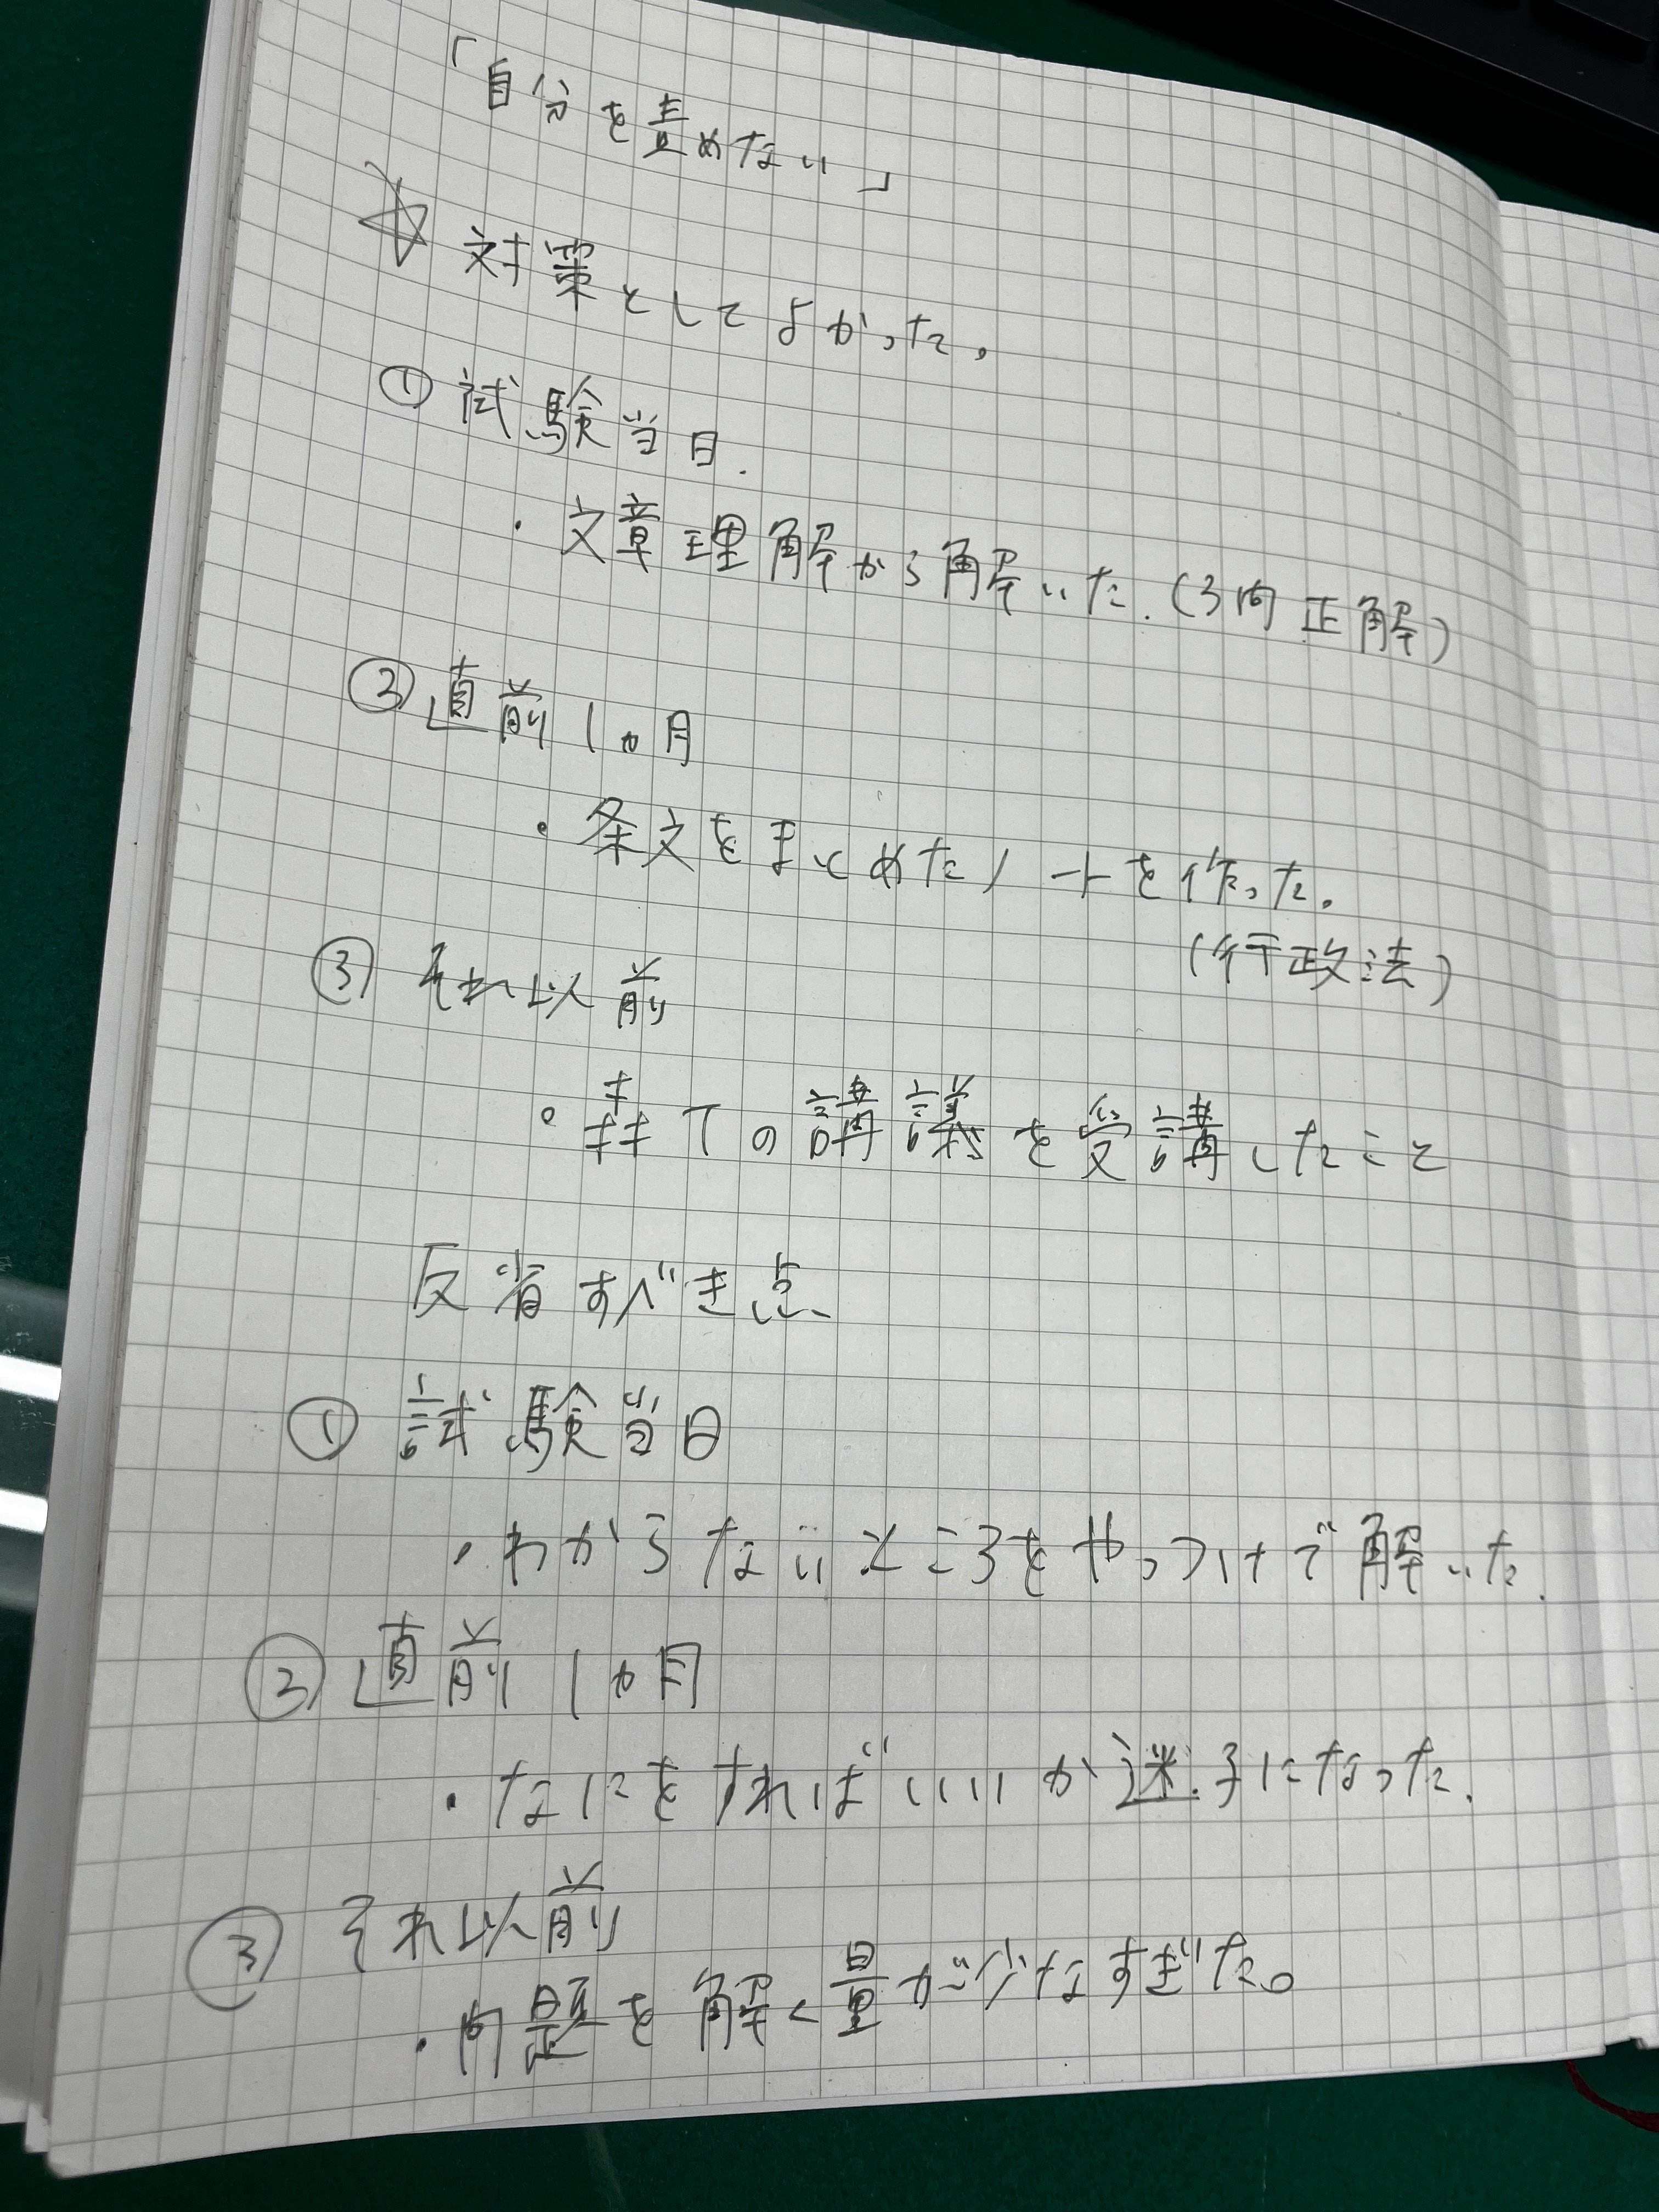 「自分を責めない」
☆ 対策としてよかった。
① 試験当日.
・文章理解から解いた.(3問正解)
② 直前1ヵ月
・条文をまとめたノートを作った。
(行政法)
③ それ以前
・ての講議を受講したこと
反省すべき点
① 試験当日
・わからないところをやっつけで解いた.
② 直前1ヵ月
・なにをすればいいか迷子になった.
③ それ以前
・問題を解く量が少なすぎた。